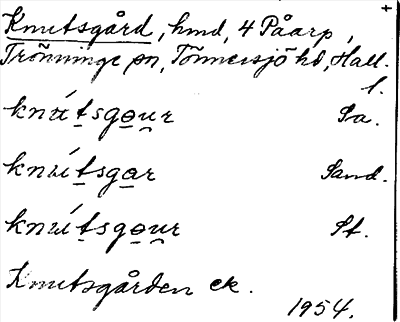 +
Knutsgård, hmd, 4 Påarp,
Trönninge sn, Tönnersjö hd, Hall.
l.
knútsgo̯u̯r Sa.
knútsgar Sand.
knútsgo̯u̯r St.
Knutsgården ek.
1954.